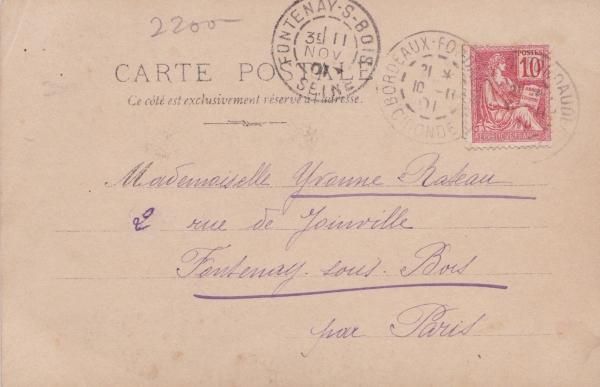 2200-
FONTENAY-S-BOIS
3E 11
NOV
01
SEINE
CARTE POSTALE
Ce côté est exclusivement réservé à l'adresse.
BORDEAUX-FO
21 *
10 - 11
01
GIRONDE
POSTES
10
Mademoiselle Yvonne Rateau
2 rue de Joinville
Fontenay-sous-Bois
par Paris